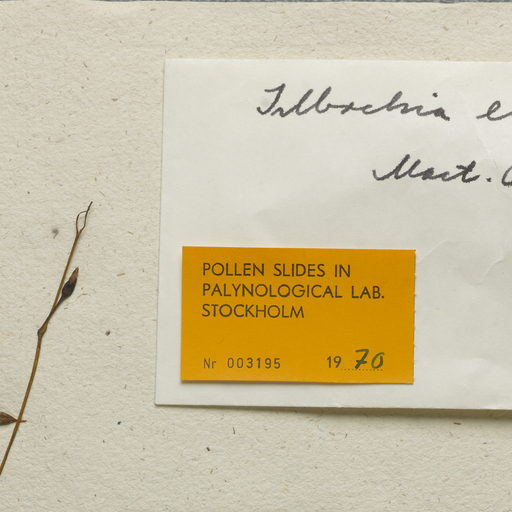 e
Mart.
POLLEN SLIDES IN
PALYNOLOGICAL LAB.
STOCKHOLM
Nr 003195 19 70